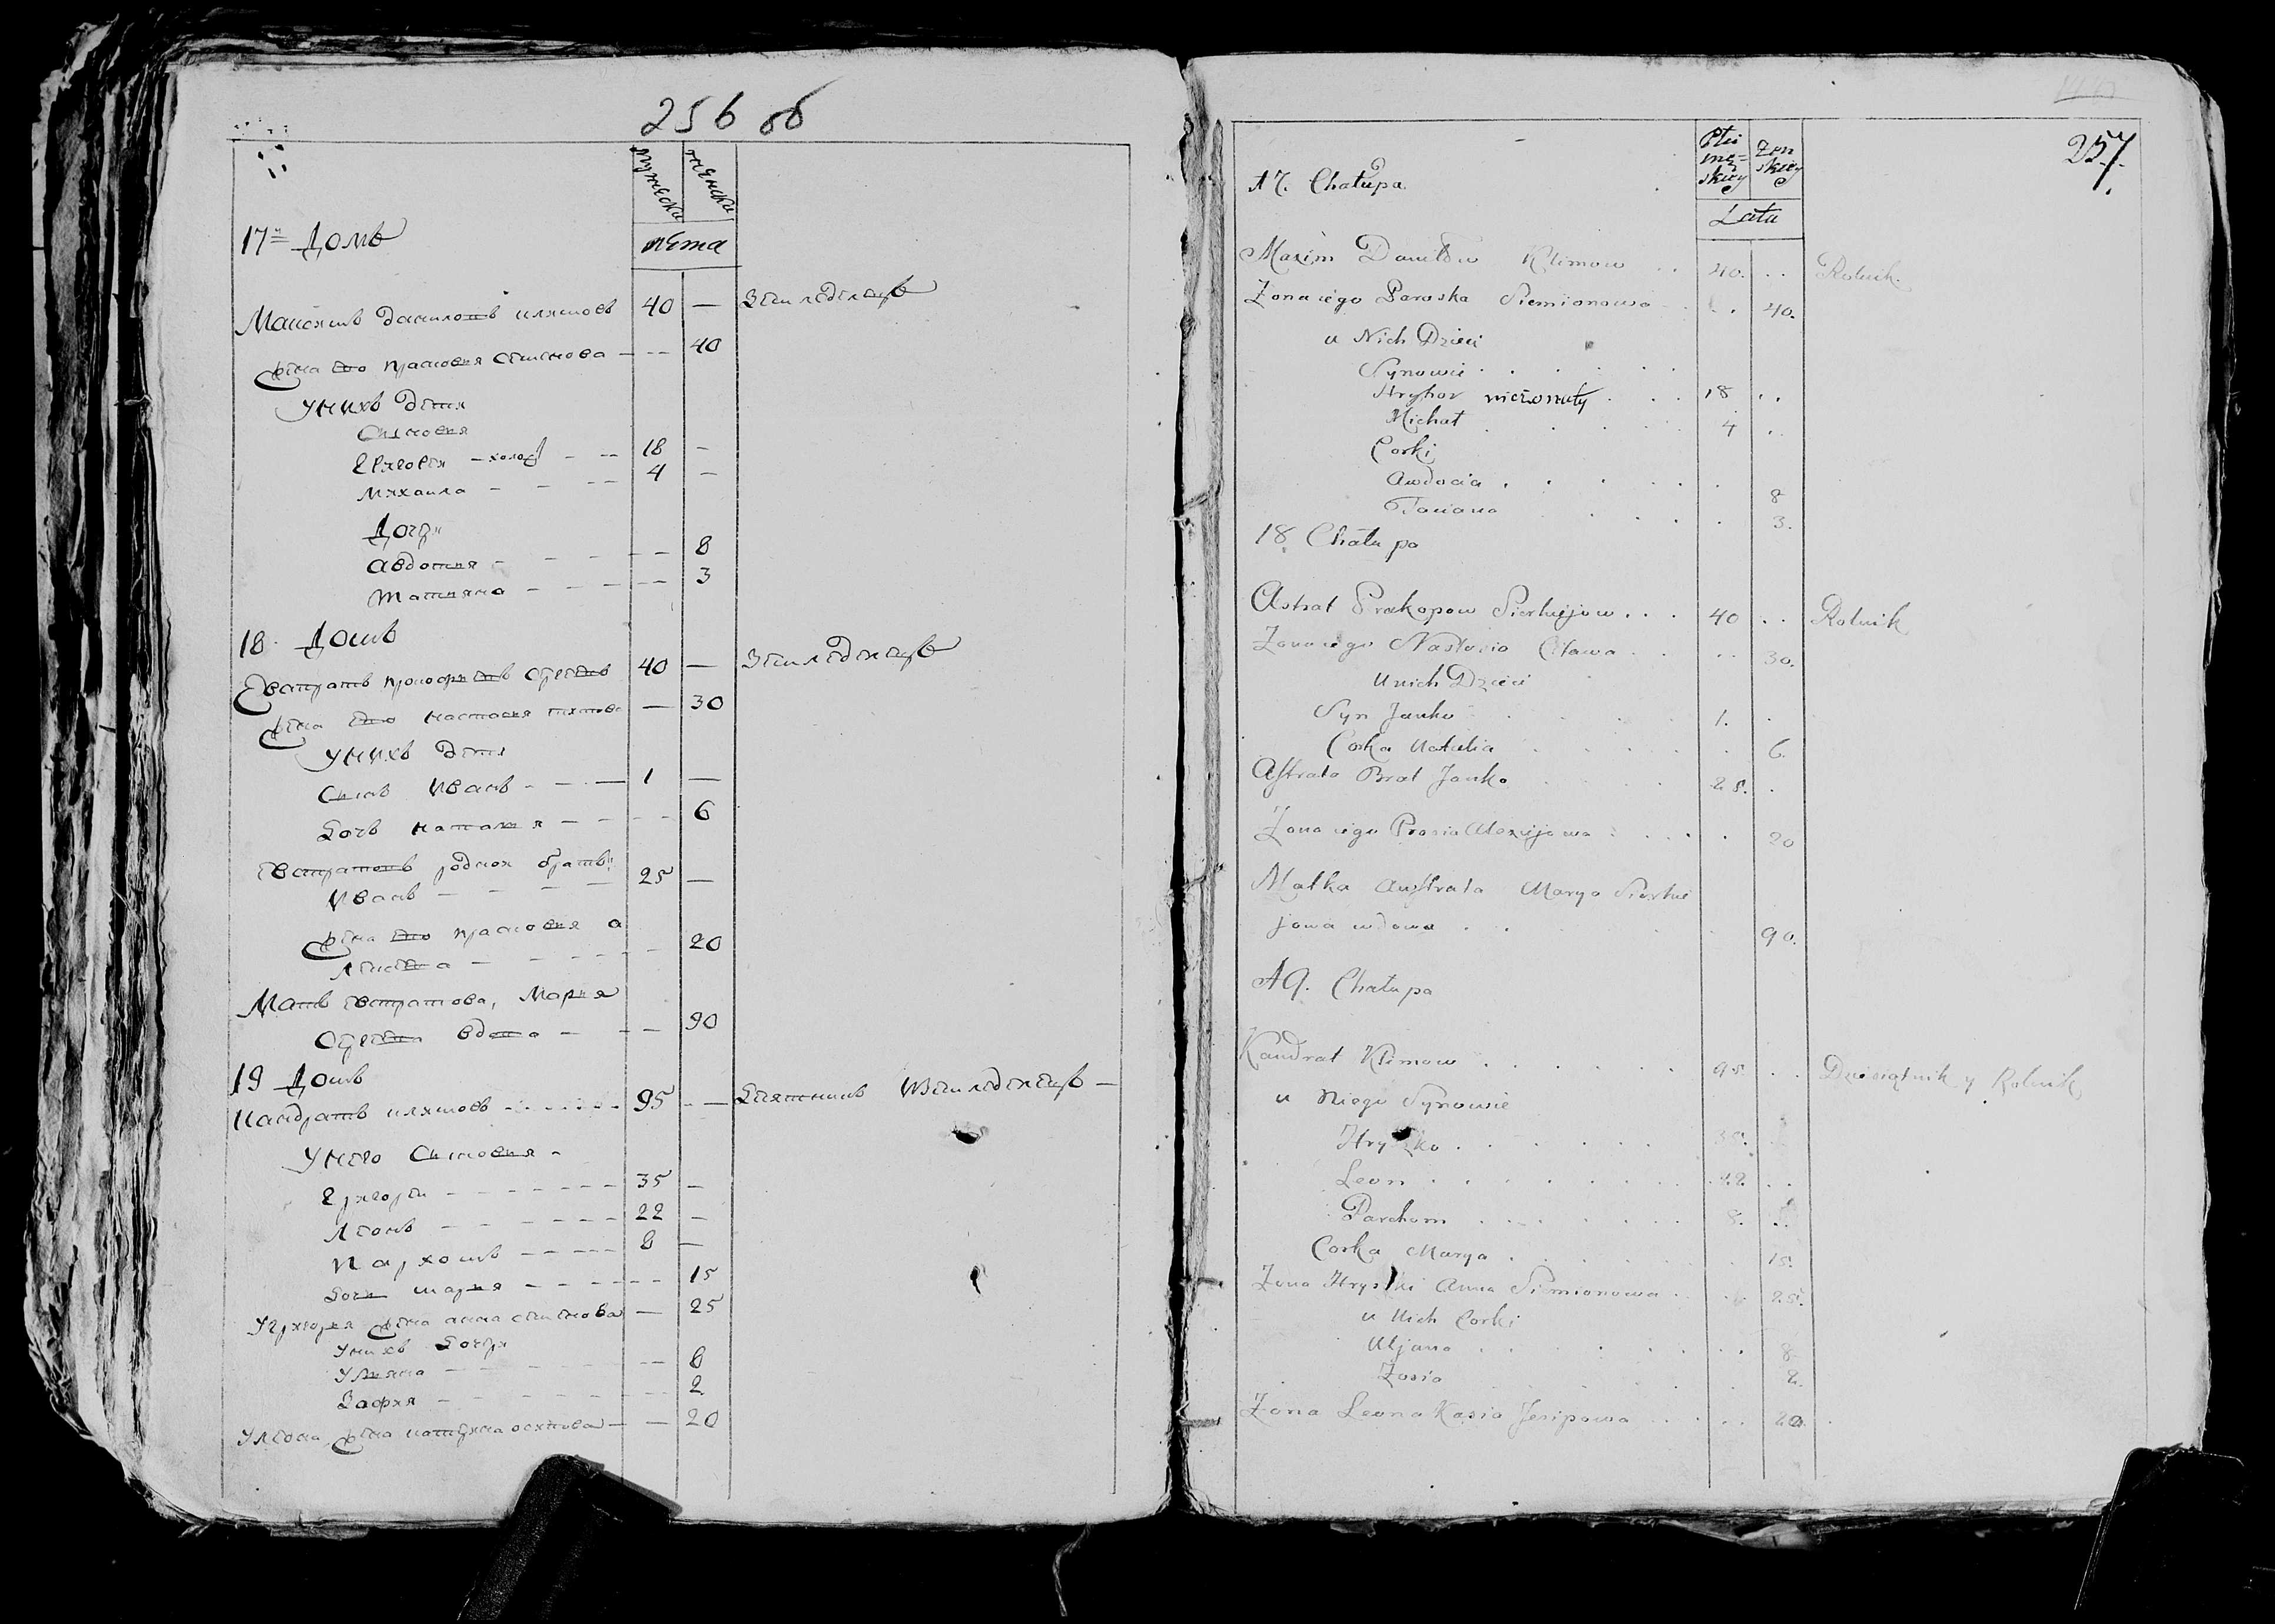 256 об
мужеска
женска
17й Домъ
лета
Максимъ Даниловъ Климовъ 40 — Земледелецъ
Жена Его прасковия Семенова — -- 40
У нихъ дети
Сыновия
Григорий — холост - -- 18 -
Михаила - - -- 4 -
Дочри
Авдотия - - - - -- 8
Татияна - - - - -- 3
18. Домъ
Евстратъ прокофиевъ Сергеевъ 40 — Земледелецъ
Жена Его настасия титова — 30
У нихъ дети
Сынъ Иванъ - - - — 1 —
Дочь наталия - - - - 6
Евстратовъ родной братъ
Иванъ - - - — 25 —
Жена Его прасковия а
лексеева - - - - - - 20
Мать Евстратова, Мария
Сергеева вдова - - — 90
19 Домъ
Кандратъ климовъ - - - - - - 95 - — Десятникъ и Земледелецъ —
У него Сыновия -
Григорий - - - - - - - 35 -
Леонъ - - - - - - - 22 -
Пархомъ - - - - - 8 —
Дочь мария - - - - - - - 15
У григория жена анна семенова — 25
У нихъ Дочри
Улияна - - - - -- 8
Зофия - - - - - -- 2
У леона жена катерина осипова — — 20
257
Płci
mę=
skiey
Żen
skiey
17. Chałupa
Lata
Maxim Daniłow Klimow . . 40. . . Rolnik.
Zona iego Paraska Siemionowa . . . 40.
u Nich Dzieci
Synowie . . . . .
Hryhor nieżonaty . . . 18 . .
Michał . . . . . 4 . .
Corki
Awdocia . . . . . . 8
Taciana . . . . 3.
18 Chałupa
Astrat Prakopow Sierhiejow . . . 40 . . Rolnik
Zona iego Nastasia Citawa . . . . 30.
U nich Dzieci
Syn Janko . . . . . 1. .
Corka Natalia . . . . . . 6.
Astrata Brat Janko . . . . 25. .
Zona iego Prosia Alexiejowa . . . . . 20
Matka Austrata Marya Sierhie
jowa wdowa . . . . 90.
19. Chałupa
Kandrat Klimow . . . . . . 95 . . Dziesiątnik y Rolnik
u Niego Synowie
Hryszko . . . . . . 35. .
Leon . . . . . . . . 22. . .
Parchom . . . . . . 8. . .
Corka Marya . . . . . 15.
Zona Hryszki Anna Siemionowa . . . 25.
u Nich Corki
Uljana . . . . . . . . 8
Zosia . . . . . 2.
Zona Leona Kasia Jesipowa . . . . . 20.